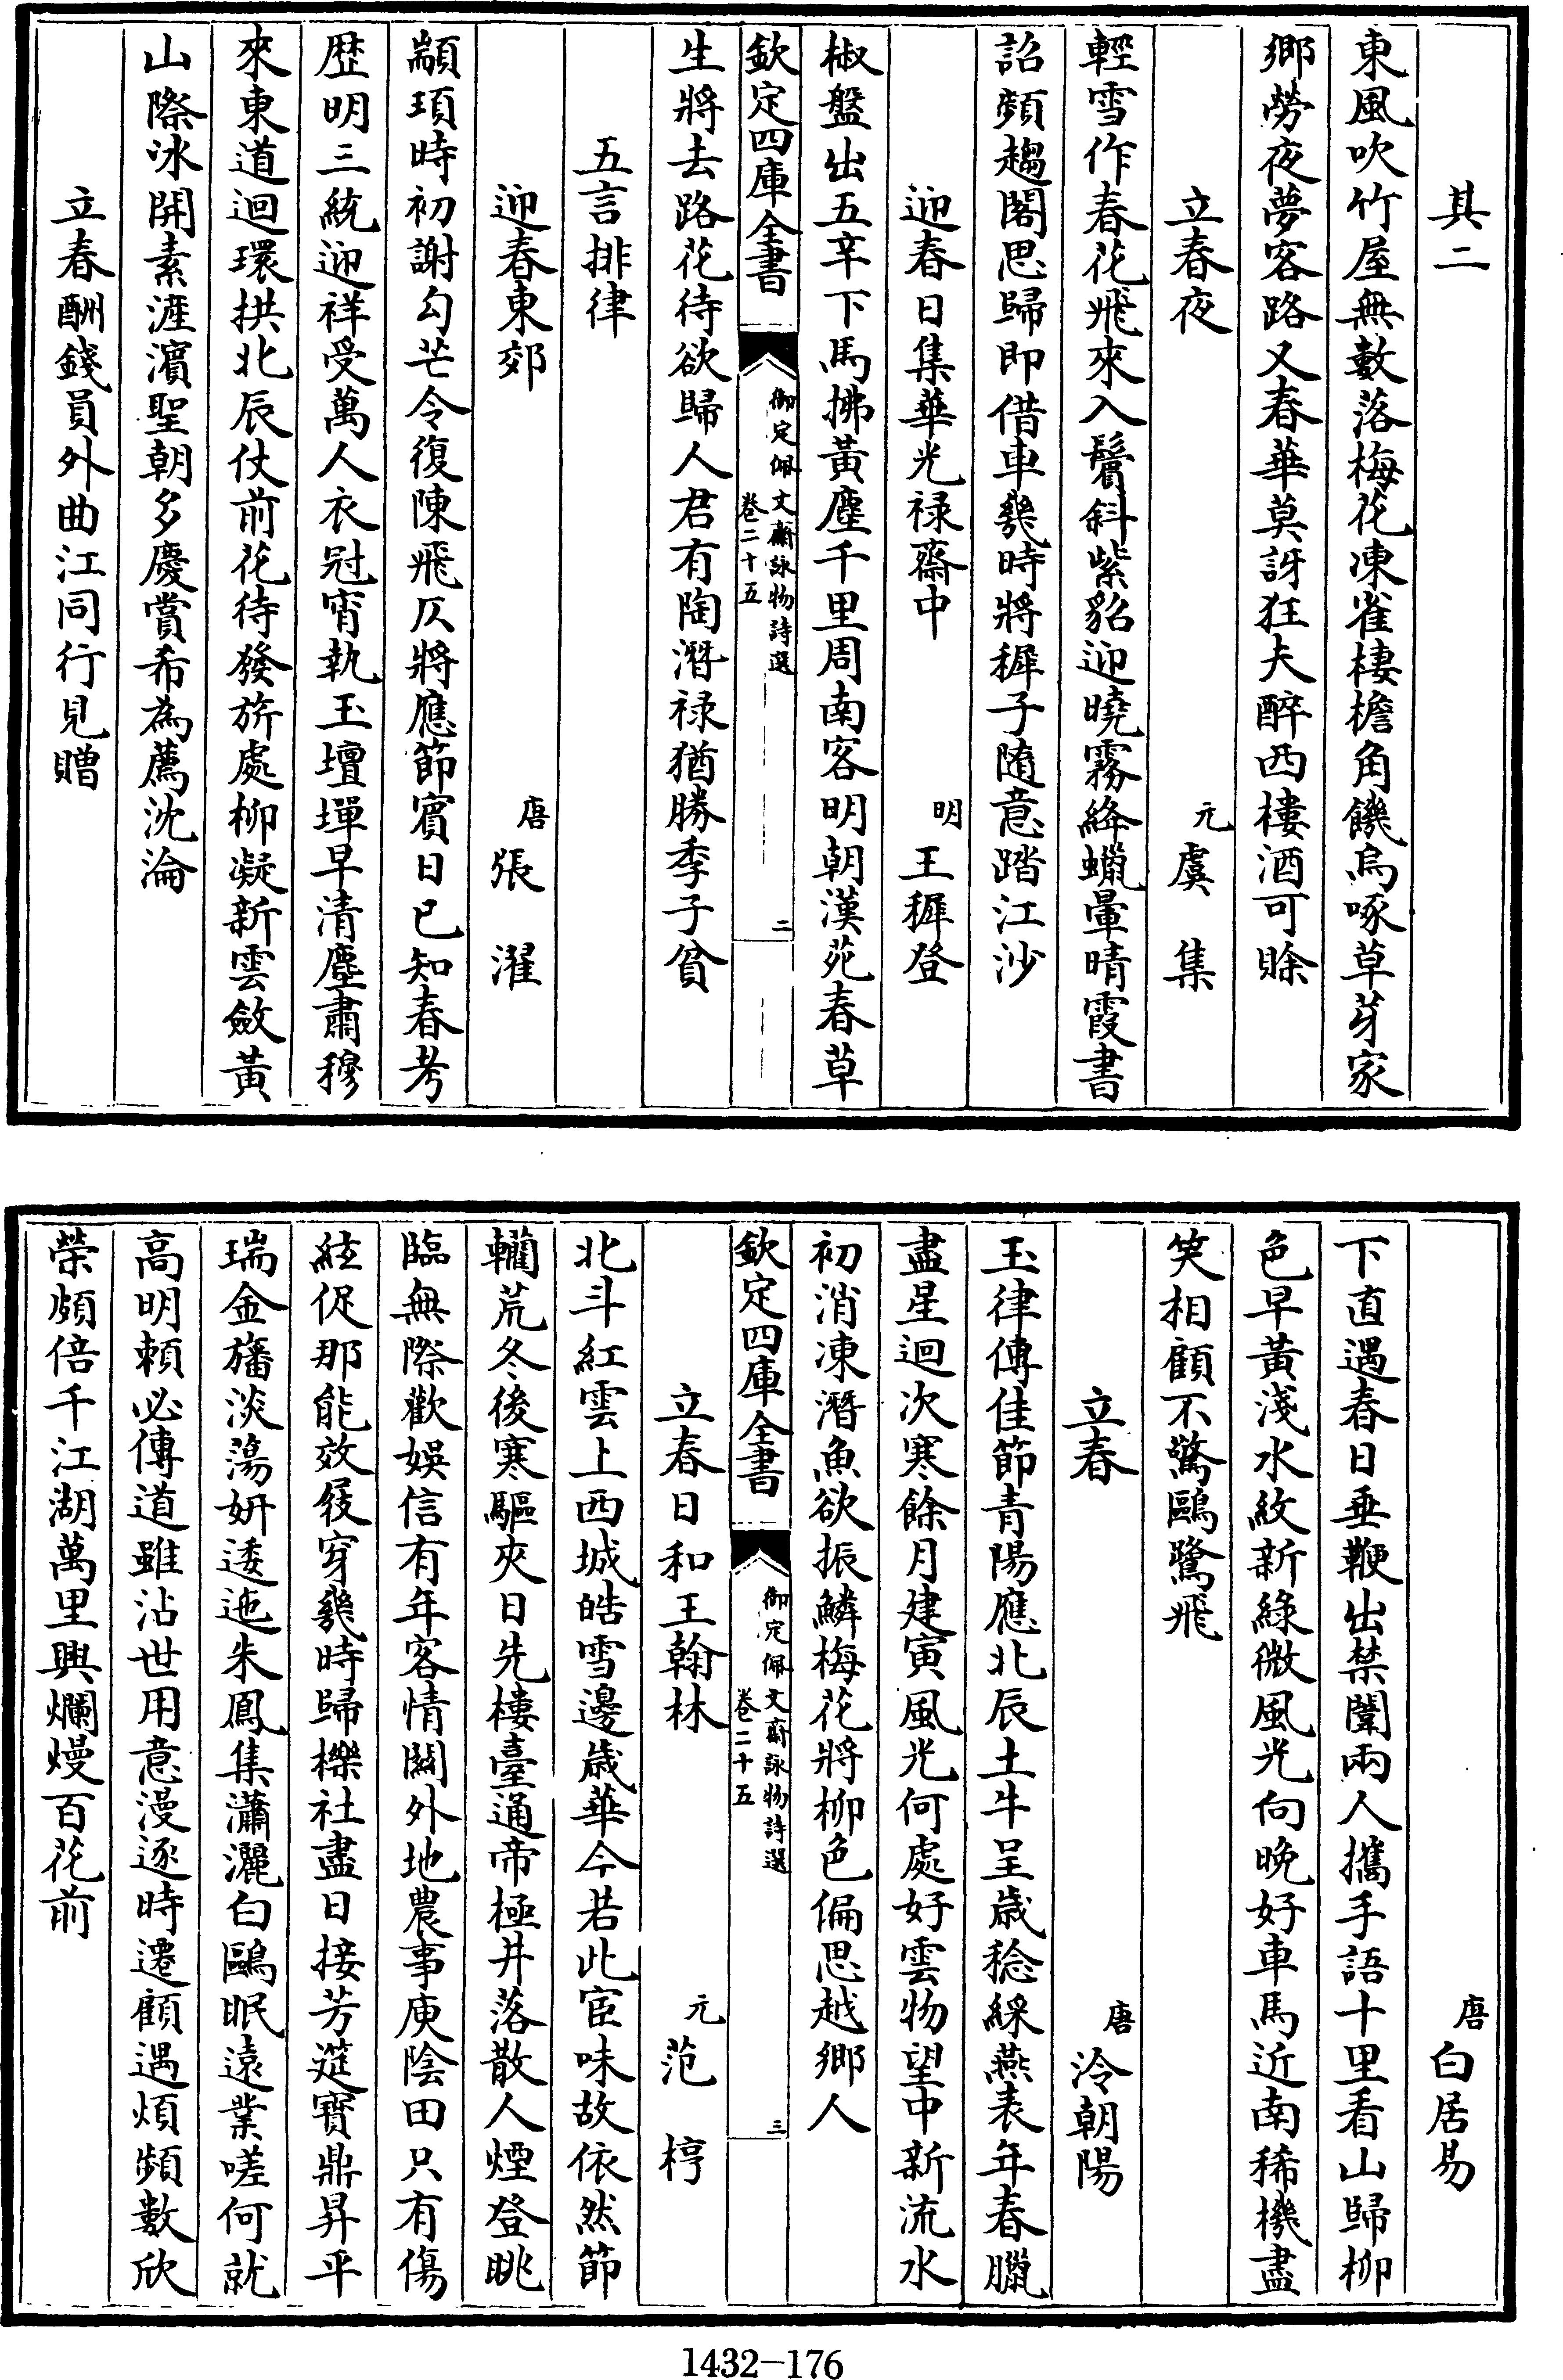 其二
東風吹竹屋無數落梅花凍雀棲檐角饑烏啄草芽家
鄉勞夜夢客路又春華莫訝狂夫醉西樓酒可賒
立春夜
元虞集
輕雪作春花飛來入鬢斜紫貂迎曉霧絳蠟暈晴霞書
詔頻趨閣思歸即借車幾時將穉子随意踏江沙
迎春日集華光禄齋中
明王穉登
椒盤出五辛下馬拂黃塵千里周南客明朝漢苑春草
欽定四庫全書
御定佩文齋詠物詩選
卷二十五
二
生將去路花待欲歸人君有陶潛禄猶勝季子貧
五言排律
迎春東郊
唐張濯
顓頊時初謝勾芒令復陳飛仄將應節賓日已知春考
歴明三統迎祥受萬人衣冠宵執玉壇墠早清塵肅穆
來東道迴環拱北辰仗前花待發旂處柳凝新雲斂黃
山際冰開素滻濱聖朝多慶賞希為薦沈淪
立春酬錢員外曲江同行見贈
唐白居易
下直遇春日垂鞭出禁闈兩人攜手語十里看山歸柳
色早黃淺水紋新綠微風光向晚好車馬近南稀機盡
笑相顧不驚鷗鷺飛
立春
唐冷朝陽
玉律傳佳節青陽應北辰土牛呈歲稔綵燕表年春臘
盡星迴次寒餘月建寅風光何處好雲物望中新流水
初消凍潛魚欲振鱗梅花將柳色偏思越鄉人
欽定四庫全書
御定佩文齋詠物詩選
卷二十五
三
立春日和王翰林
元范梈
北斗紅雲上西城皓雪邊歲華今若此宦味故依然節
轥荒冬後寒驅夾日先樓臺通帝極井落散人煙登眺
臨無際歡娛信有年客情關外地農事庾陰田只有傷
絃促那能效屐穿幾時歸櫟社盡日接芳筵寶鼎昇平
瑞金旛淡蕩妍逶迤朱鳳集瀟灑白鷗眠遠業嗟何就
高明賴必傳道雖沾世用意漫逐時遷顧遇煩頻數欣
榮頗倍千江湖萬里興爛熳百花前
1432-176